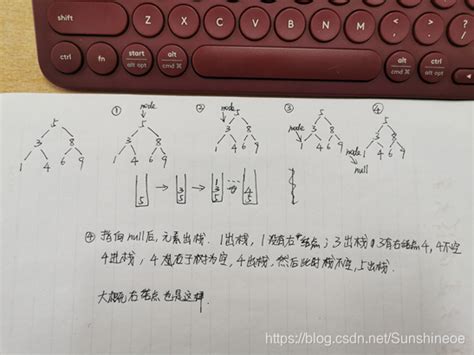 shift Z X C V B N M < , > . ? / shift
fn ctrl start alt opt alt cmd ⌘ alt cmd ⌘ ctrl alt opt
① node ② node ③ ④
5 5 5 5 5
3 8 3 8 3 8 node 3 8 3 8
1 4 6 9 1 4 6 9 1 4 6 9 1 4 6 9 node 1 4 6 9
null
5 → 3 5 → 1 3 5 … 4 5
④ 指向null后,元素出栈. 1出栈, 1没有右结点; 3出栈 3有右结点4, 4不空
4进栈, 4左右子树为空, 4出栈, 然后此时栈不空, 5出栈.
大概右结点也是这样.
https://blog.csdn.net/Sunshineoe